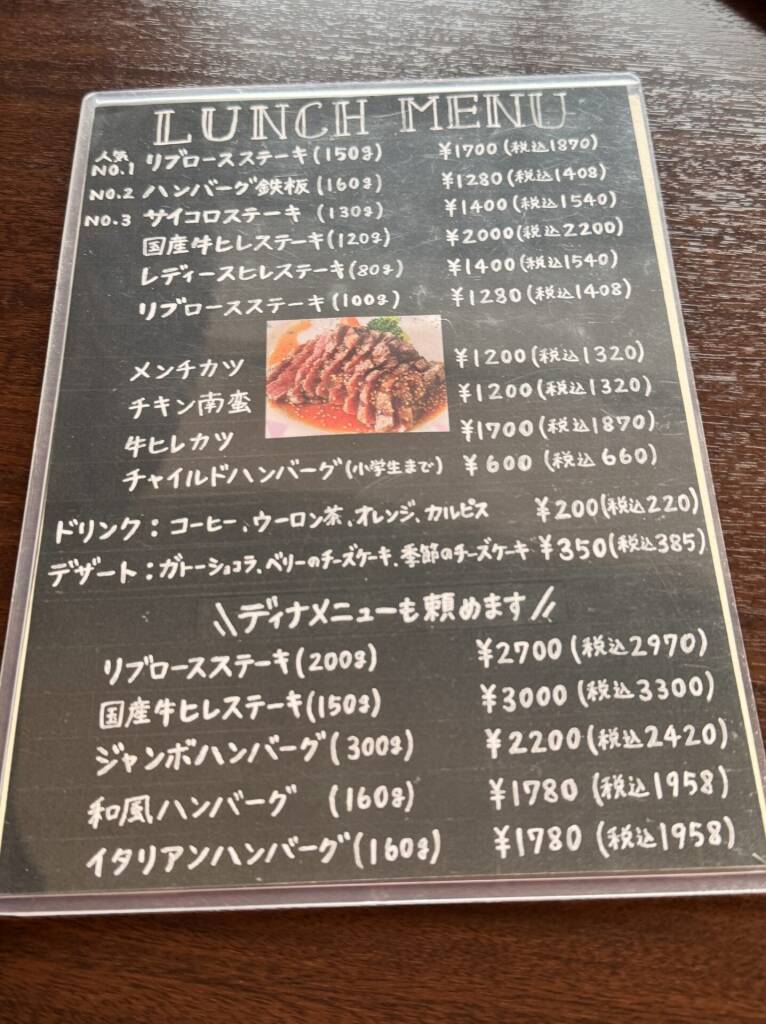 LUNCH MENU
人気 NO.1 リブロースステーキ(150g) ¥1700(税込1870)
NO.2 ハンバーグ鉄板(160g) ¥1280(税込1408)
NO.3 サイコロステーキ (130g) ¥1400(税込1540)
国産牛ヒレステーキ(120g) ¥2000(税込2200)
レディースヒレステーキ(80g) ¥1400(税込1540)
リブロースステーキ(100g) ¥1280(税込1408)
メンチカツ ¥1200(税込1320)
チキン南蛮 ¥1200(税込1320)
牛ヒレカツ ¥1700(税込1870)
チャイルドハンバーグ(小学生まで) ¥600 (税込660)
ドリンク:コーヒー、ウーロン茶、オレンジ、カルピス ¥200(税込220)
デザート:ガトーショコラ、ベリーのチーズケーキ、季節のチーズケーキ ¥350(税込385)
\\ディナメニューも頼めます//
リブロースステーキ(200g) ¥2700(税込2970)
国産牛ヒレステーキ(150g) ¥3000(税込3300)
ジャンボハンバーグ(300g) ¥2200(税込2420)
和風ハンバーグ (160g) ¥1780 (税込1958)
イタリアンハンバーグ(160g) ¥1780 (税込1958)